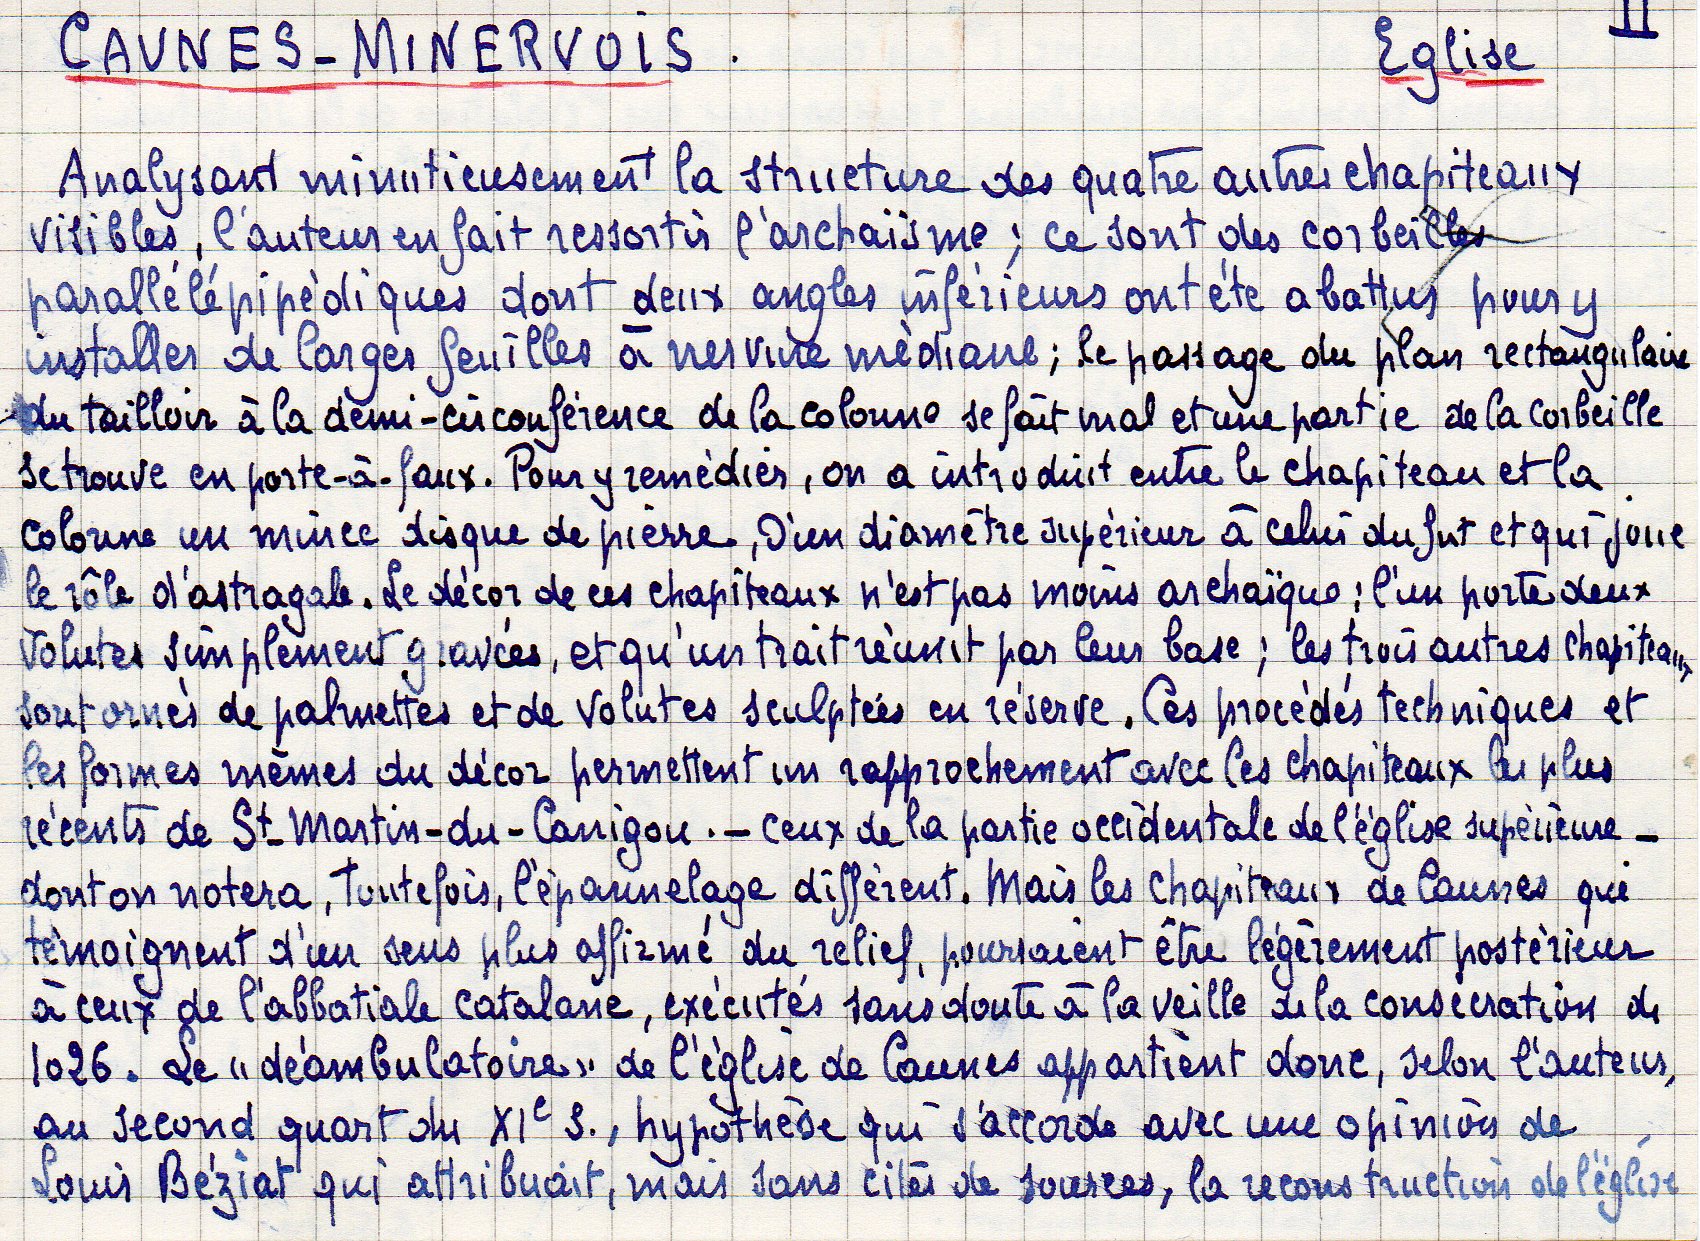 CAUNES-MINERVOIS. Eglise II
Analysant minutieusement la structure des quatre autres chapiteaux
visibles, l'auteur en fait ressortir l'archaïsme ; ce sont des corbeilles
parallélépipédiques dont deux angles inférieurs ont été abattus pour y
installer de larges feuilles à nervure médiane ; le passage du plan rectangulaire
du tailloir à la demi-circonférence de la colonne se fait mal et une partie de la corbeille
se trouve en porte-à-faux. Pour y remédier, on a introduit entre le chapiteau et la
colonne un mince disque de pierre, d'un diamètre supérieur à celui du fut et qui joue
le rôle d'astragale. Le décor de ces chapiteaux n'est pas moins archaïque ; l'un porte deux
volutes simplement gravées, et qu'un trait réunit par leur base ; les trois autres chapiteaux
sont ornés de palmettes et de volutes sculptées en réserve. Ces procédés techniques et
les formes mêmes du décor permettent un rapprochement avec les chapiteaux les plus
récents de St-Martin-du-Canigou.- ceux de la partie occidentale de l'église supérieure -
dont on notera, toutefois, l'épannelage différent. Mais les chapiteaux de Caunes qui
témoignent d'un sens plus affirmé du relief, pourraient être légèrement postérieur
à ceux de l'abbatiale catalane, exécutés sans doute à la veille de la consécration de
1026. Le "déambulatoire" de l'église de Caunes appartient donc, selon l'auteur,
au second quart du XIe S., hypothèse qui s'accorde avec une opinion de
Louis Béziat qui attribuait, mais sans citer de sources, la reconstruction de l'église